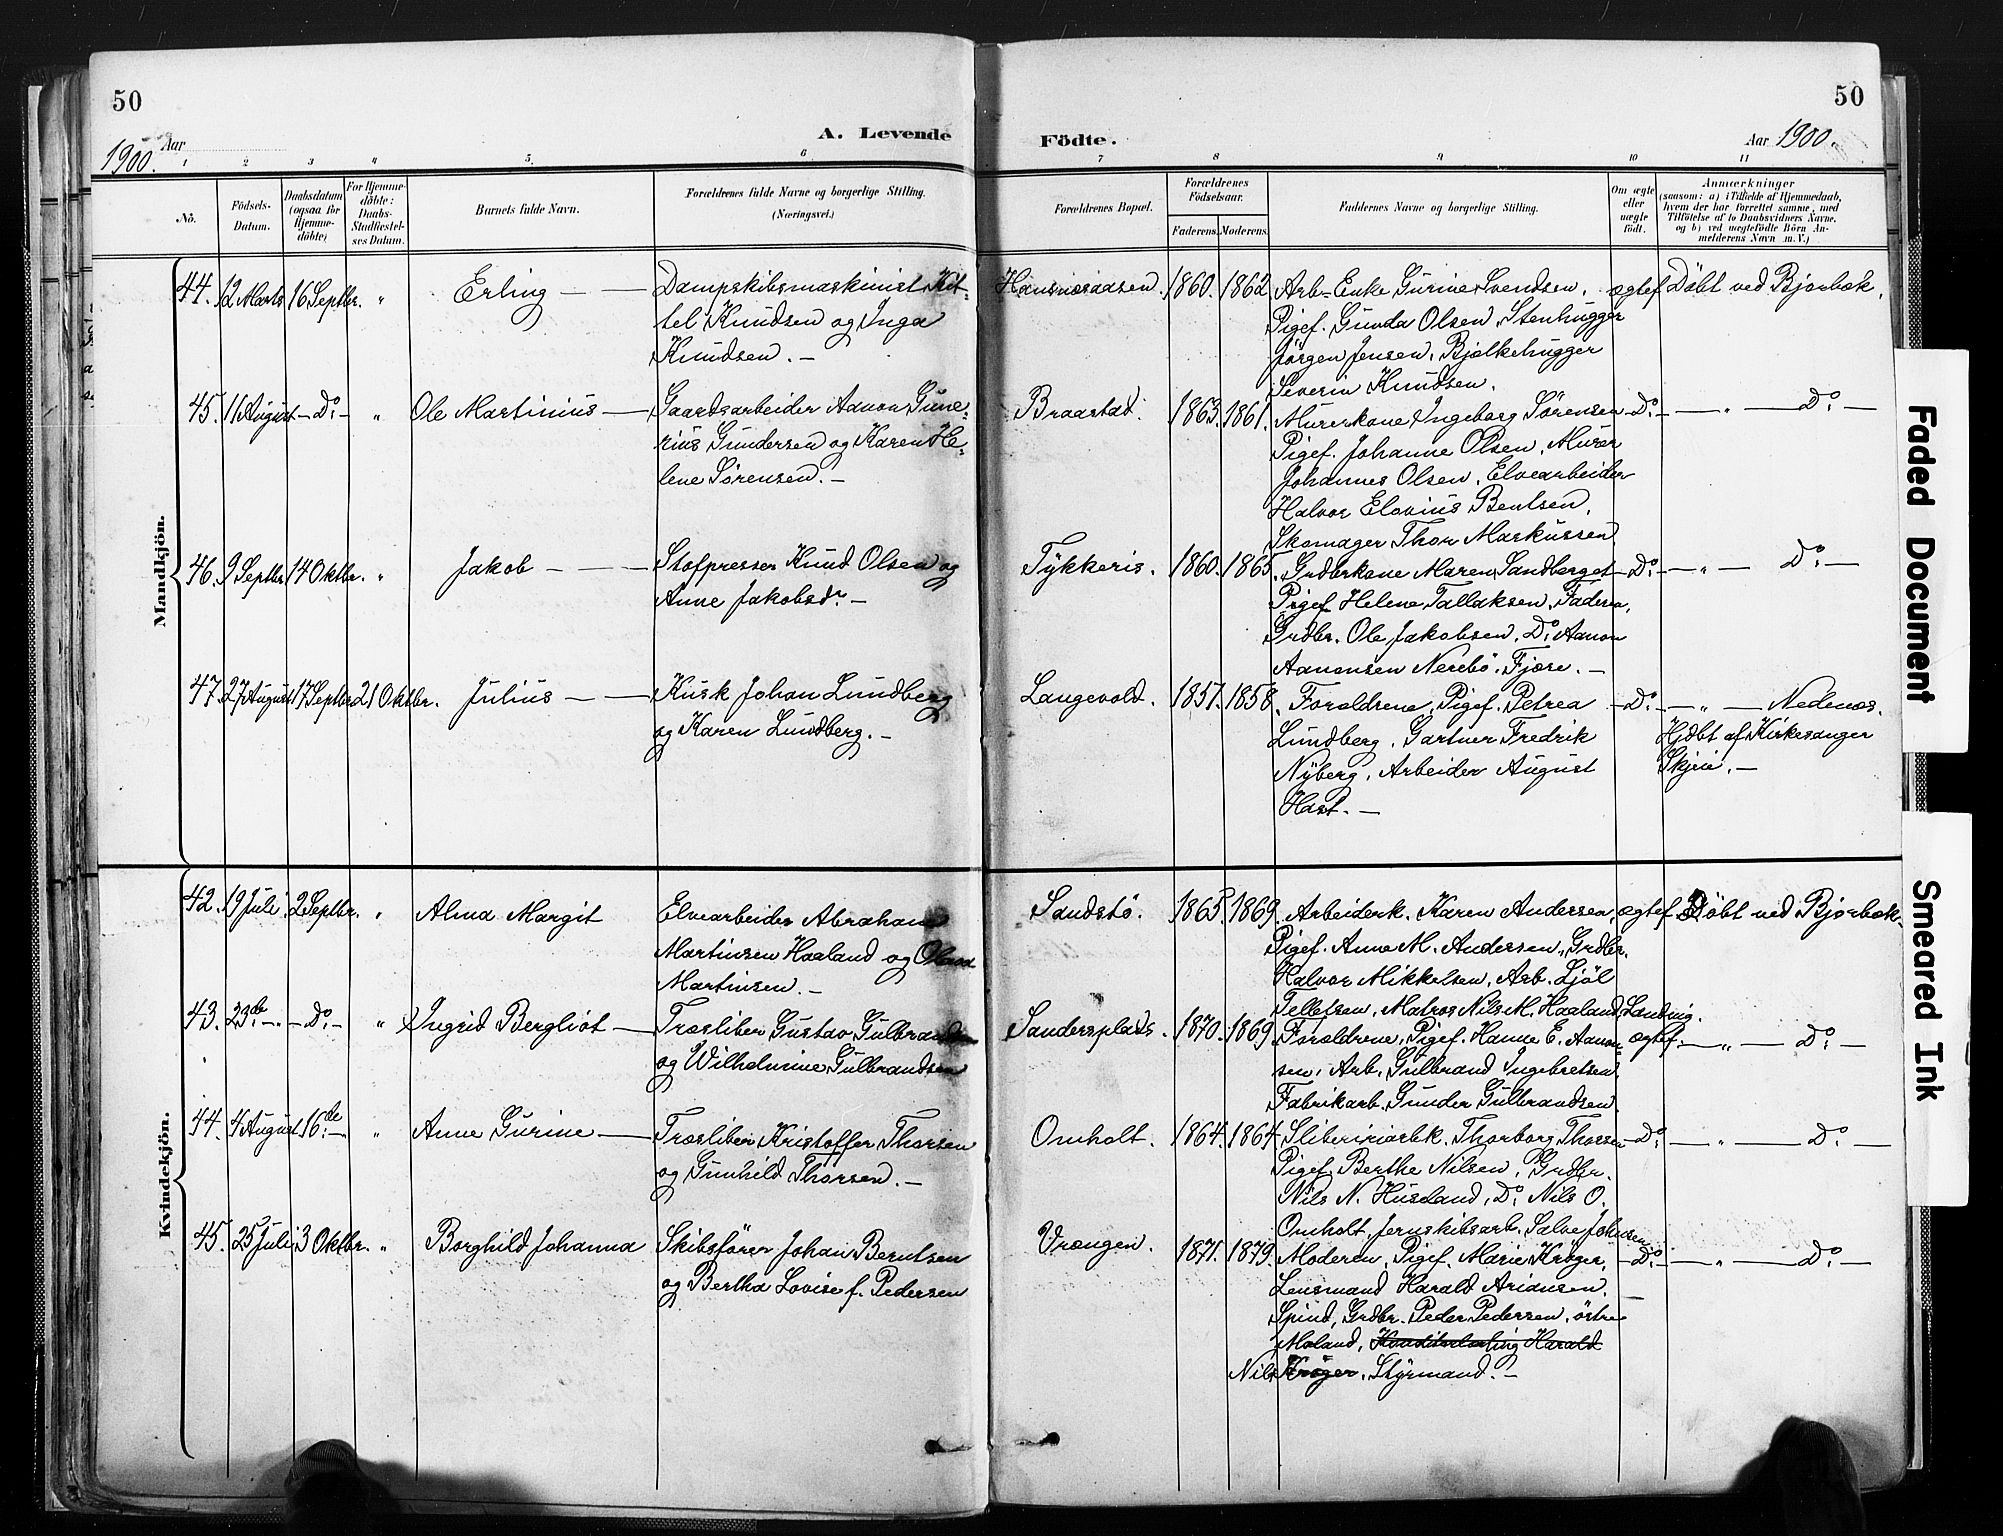 50
A. Levende
Födte.
50
Aar 1900.
Aar 1900.
1 2 3 4 5. 6 7 8 9 10 11
Nò.
Födsels-
Datum.
Daabsdatum
(ogsaa for
Hjemme-
döbte)
For Hjemme-
döbte:
Daabs-
Stadfæstel-
ses Datum.
Barnets fulde Navn.
Forældrenes fulde Navne og borgerlige Stilling.
(Næringsvei.)
Forældrenes Bopæl.
Forældrenes
Födselsaar.
Faderens. Moderens.
Faddernes Navne og borgerlige Stilling.
Om ægte
eller
uægte
födt.
Anmærkninger
(saasom: a) i Tilfælde af Hjemmedaab,
hvem der har forrettet samme, med
Tilföielse af to Daabsvidners Navne,
og b) ved uægtefödte Börn An-
melderens Navn m. V.)
Mandkjön.
44. 12 Marts 16 Septbr. " Erling — —
Dampskibsmaskinist Kit-
tel Knudsen og Inga
Knudsen. —
1860. 1862
Arb-Enke Gurine Svendsen,
Pigef. Gunda Olsen, Stenhugger
Jörgen Jensen, Bjelkehugger
Severin Knudsen.
ægtef Döbt ved Bjorbæk.
45. 11 August — Do — " Ole Martinius —
Gaardsarbeider Aanon Gune-
rius Gundersen og Karen He-
lene Sørensen. —
Braastad. 1863. 1861.
Murerkone Ingeborg Sørensen
Pigef. Johanne Olsen, Murer
Johannes Olsen, Elvearbeider
Halvor Elovius Bentsen,
Skomager Thor Markussen
— Do — — " — Do —
46. 9 Septbr 14 Oktbr. " Jakob — —
Stofpresser Knud Olsen og
Anne Jakobsdr —
Tykkeris. 1860. 1865.
Grdbrkone Maren Sandberget
Pigef Helene Tallaksen, Faderen,
Grdbr. Ole Jakobsen, Do Aanon
Aanonsen Nerebö, Fjære. —
— Do — — " — Do —
47. 27 August 17 Septbr 21 Oktbr. Julius — —
Kusk Johan Lundberg
og Karen Lundberg. —
Langevold. 1857. 1858.
Forældrene, Pigef. Petrea
Lundberg, Gartner Fredrik
Nyberg, Arbeider August
Hast. —
— Do — — " — Nedenæs.
Hjdbt af Kirkesanger
Skjeie. —
Kvindekjön.
42. 19 Juli 2 Septbr. " Alma Margit
Elvearbeider Abraham
Martinsen Haaland og
Martinsen. —
Sandstö. 1865. 1869.
Arbeiderk. Karen Andersen,
Pigef. Anne M. Andersen, Grdbr.
Halvor Mikkelsen, Arb. Ljöl
Telletsen, Matros Nils M. Haaland, Landvig.
ægtef Döbt ved Bjorbæk.
43. 23de — " — Do — " Ingrid Bergliot —
Træsliber Gustav Gulbrandsen
og Wilhelmine Gulbrandsen
Sandersplads. 1870. 1869
Forældrene, Pigef. Hanne E. Aanon-
sen, Arb. Gulbrand Ingebretsen,
Fabrikarb. Gunder Gulbrandsen.
ægtef. — " — Do —
44. 4 August 16de — " Anne Gurine —
Træsliber Kristoffer Thorsen
og Gunhild Thorsen. —
Omholt. 1864. 1864
Sliberiarbk. Thorborg Thorsen
Pigef Berthe Nilsen, Grdbr.
Nils N. Husland, Do Nils O.
Omholt, Jernskibsarb. Salve Johnsen
— Do — " — Do —
45. 25 Juli 3 Oktbr. " Borghild Johanna
Skibsförer Johan Berntsen
og Bertha Lovise f. Pedersen
Vrengen. 1871. 1879.
Moderen, Pigef. Marie Kröger,
Lensmand Harald Ariansen,
Spind, Grdbr. Peder Pedersen, östre
Moland, Harald
Nils Kröger, Styrmand. —
— Do — — " — Do —
Faded Document
Smeared Ink